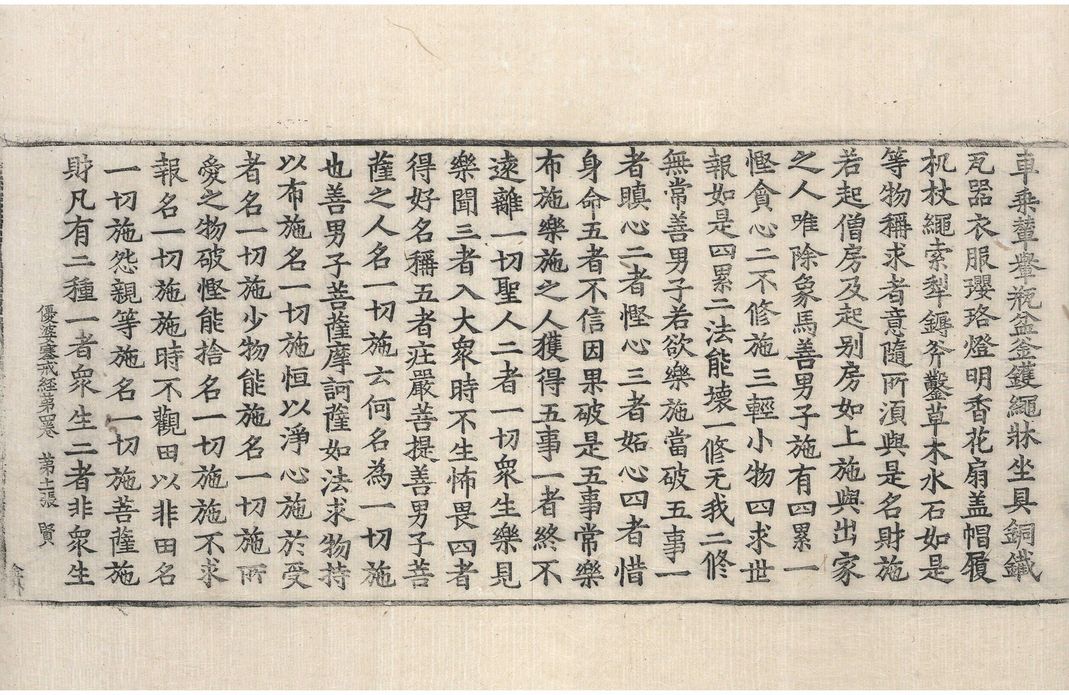 車乘輦轝瓶盆釜鑊繩牀坐具銅鐵
瓦器衣服瓔珞燈明香花扇盖帽履
机杖繩索犁鎒斧鑿草木水石如是
等物稱求者意隨所湏與是名財施
若起僧房及起别房如上施與出家
之人唯除象馬善男子施有四累一
慳貪心二不修施三輕小物四求世
報如是四累二法能壞一修无我二修
無常善男子若欲樂施當破五事一
者瞋心二者慳心三者妬心四者惜
身命五者不信因果破是五事常樂
布施樂施之人獲得五事一者終不
遠離一切聖人二者一切衆生樂見
樂聞三者入大衆時不生怖畏四者
得好名稱五者莊嚴菩提善男子菩
薩之人名一切施云何名為一切施
也善男子菩薩摩訶薩如法求物持
以布施名一切施恒以淨心施於受
者名一切施少物能施名一切施所
愛之物破慳能捨名一切施施不求
報名一切施施時不觀田以非田名
一切施怨親等施名一切施菩薩施
財凡有二種一者衆生二者非衆生
優婆塞戒經第四卷 第十張 賢